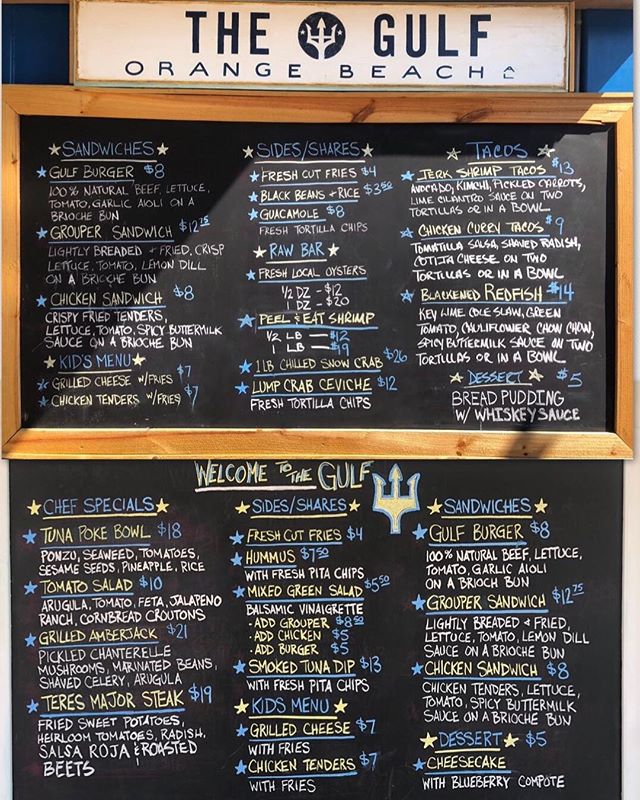 THE GULF
ORANGE BEACH
SANDWICHES
GULF BURGER $8
100% NATURAL BEEF, LETTUCE,
TOMATO, GARLIC AIOLI ON A
BRIOCHE BUN
GROUPER SANDWICH $12.75
LIGHTLY BREADED + FRIED, CRISP
LETTUCE, TOMATO, LEMON DILL
ON A BRIOCHE BUN
CHICKEN SANDWICH $8
CRISPY FRIED TENDERS,
LETTUCE, TOMATO, SPICY BUTTERMILK
SAUCE ON A BRIOCHE BUN
KID'S MENU
GRILLED CHEESE W/FRIES $7
CHICKEN TENDERS W/FRIES $7
SIDES/SHARES
FRESH CUT FRIES $4
BLACK BEANS + RICE $3.50
GUACAMOLE $8
FRESH TORTILLA CHIPS
RAW BAR
FRESH LOCAL OYSTERS
1/2 DZ - $12
1 DZ - $20
PEEL & EAT SHRIMP
1/2 LB - $12
1 LB - $19
1 LB CHILLED SNOW CRAB $26
LUMP CRAB CEVICHE $12
FRESH TORTILLA CHIPS
TACOS
JERK SHRIMP TACOS $13
AVOCADO, KIMCHI, PICKLED CARROTS,
LIME CILANTRO SAUCE ON TWO
TORTILLAS OR IN A BOWL
CHICKEN CURRY TACOS $9
TOMATILLA SALSA, SHAVED RADISH,
COTIJA CHEESE ON TWO
TORTILLAS OR IN A BOWL
BLACKENED REDFISH $14
KEY LIME COLE SLAW, GREEN
TOMATO, CAULIFLOWER CHOW CHOW,
SPICY BUTTERMILK SAUCE ON TWO
TORTILLAS OR IN A BOWL
DESSERT $5
BREAD PUDDING
W/ WHISKEY SAUCE
WELCOME TO THE GULF
CHEF SPECIALS
TUNA POKE BOWL $18
PONZU, SEAWEED, TOMATOES,
SESAME SEEDS, PINEAPPLE, RICE
TOMATO SALAD $10
ARUGULA, TOMATO, FETA, JALAPENO
RANCH, CORNBREAD CROUTONS
GRILLED AMBERJACK $21
PICKLED CHANTERELLE
MUSHROOMS, MARINATED BEANS,
SHAVED CELERY, ARUGULA
TERES MAJOR STEAK $19
FRIED SWEET POTATOES,
HEIRLOOM TOMATOES, RADISH,
SALSA ROJA & ROASTED
BEETS
SIDES/SHARES
FRESH CUT FRIES $4
HUMMUS $7.50
WITH FRESH PITA CHIPS
MIXED GREEN SALAD $5.50
BALSAMIC VINAIGRETTE
· ADD GROUPER $8.50
· ADD CHICKEN $5
· ADD BURGER $5
SMOKED TUNA DIP $13
WITH FRESH PITA CHIPS
KIDS MENU
GRILLED CHEESE $7
WITH FRIES
CHICKEN TENDERS $7
WITH FRIES
SANDWICHES
GULF BURGER $8
100% NATURAL BEEF, LETTUCE,
TOMATO, GARLIC AIOLI
ON A BRIOCH BUN
GROUPER SANDWICH $12.75
LIGHTLY BREADED + FRIED,
LETTUCE, TOMATO, LEMON DILL
SAUCE ON A BRIOCHE BUN
CHICKEN SANDWICH $8
CHICKEN TENDERS, LETTUCE,
TOMATO, SPICY BUTTERMILK
SAUCE ON A BRIOCHE BUN
DESSERT $5
CHEESECAKE
WITH BLUEBERRY COMPOTE